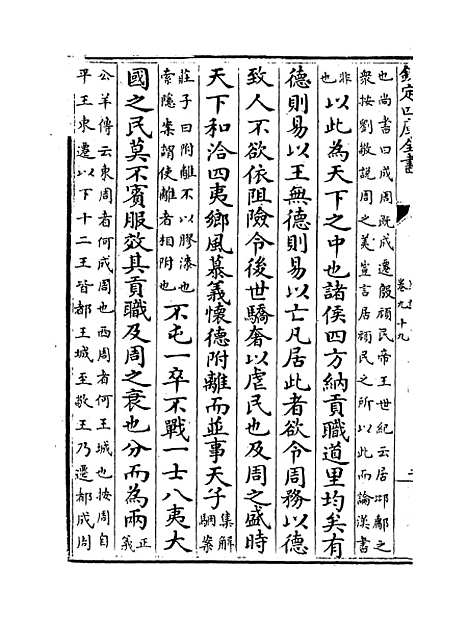 欽定四庫全書
卷九十九
二
也尚書曰成周既成遷殷頑民帝王世紀云居邶鄘之
衆按劉敬說周之美豈言居頑民之所以此而論漢書
非也以此為天下之中也諸侯四方納貢職道里均矣有
德則易以王無德則易以亡凡居此者欲令周務以德
致人不欲依阻險令後世驕奢以虐民也及周之盛時
天下和洽四夷鄉風慕義懷德附離而並事天子集解駰案
莊子曰附離不以膠漆也索隱案謂使離者相附也不屯一卒不戰一士八夷大
國之民莫不賓服效其貢職及周之衰也分而為兩正義
公羊傳云東周者何成周也西周者何王城也按周自
平王東遷以下十二王皆都王城至敬王乃遷都成周